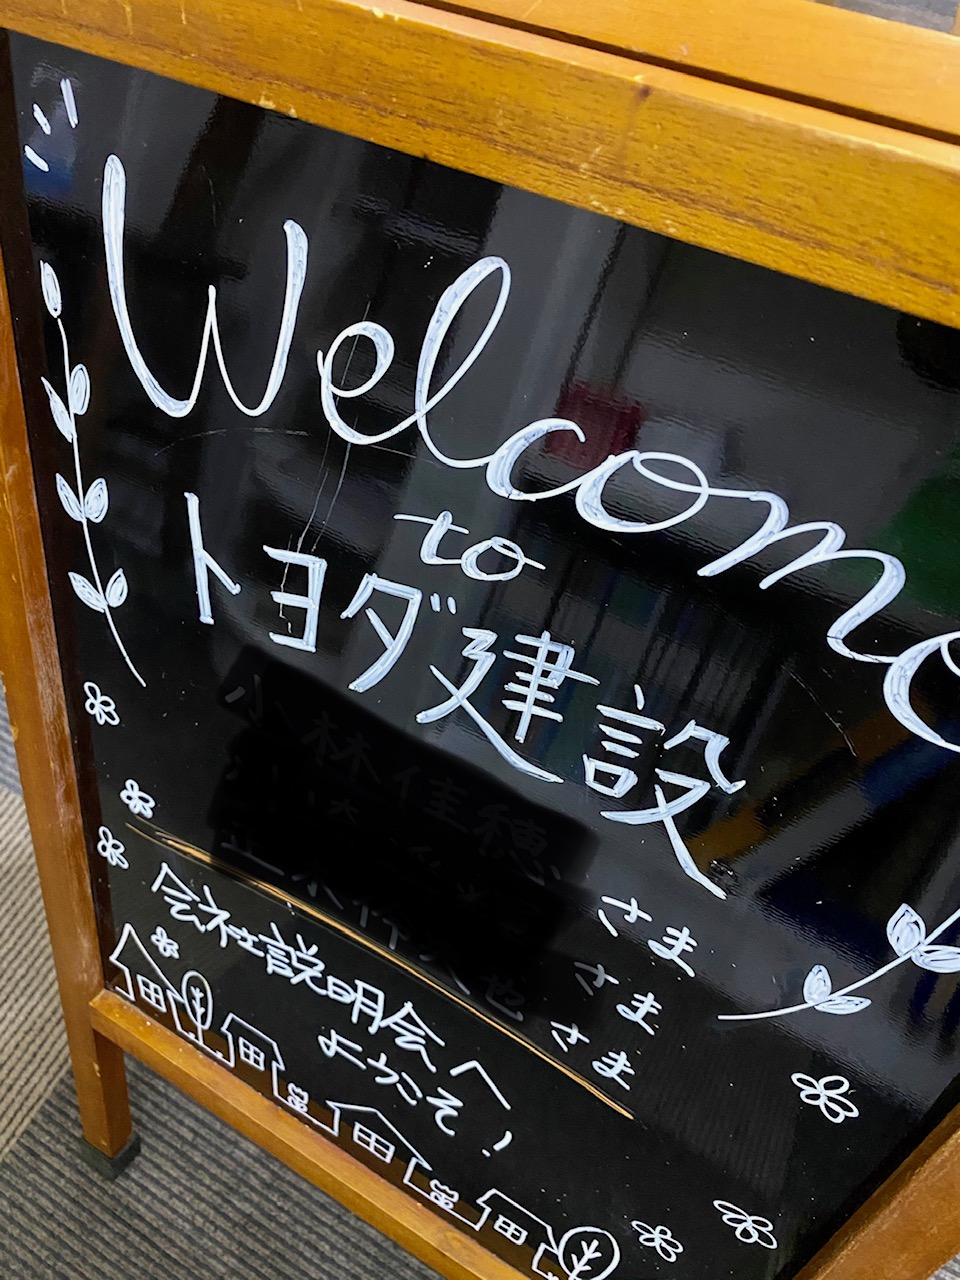 Welcome
to
トヨダ建設
さま
さま
さま
会社説明会へ
ようこそ！